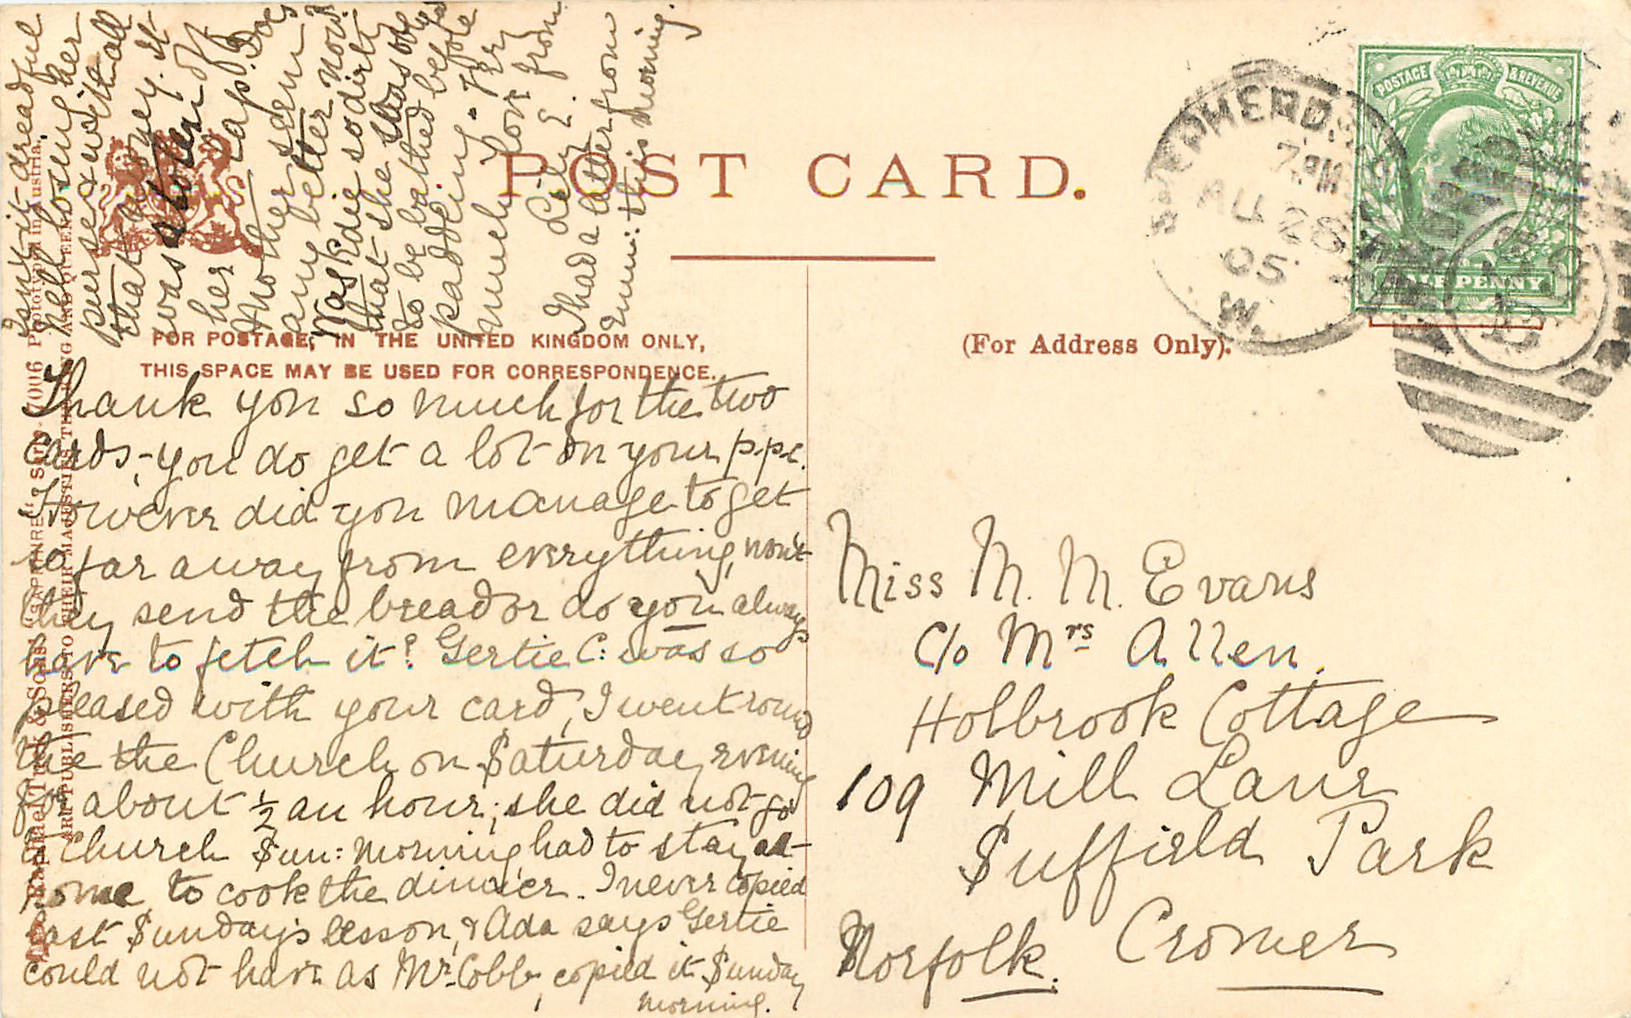 POST CARD.
FOR POSTAGE, IN THE UNITED KINGDOM ONLY,
THIS SPACE MAY BE USED FOR CORRESPONDENCE.
(For Address Only).
POSTAGE & REVENUE
PENNY
SHEPHERDS
AU 28
05
W.
Thank you so much for the two
cards, you do get a lot on your p.p.c.
However did you manage to get
so far away from everything, won't
they send the bread or do you always
have to fetch it? Gertie C: was so
pleased with your card, I went round
the the Church on Saturday evening
for about ½ an hour; she did not go
to Church Sun: morning had to stay at
home to cook the dinner. I never copied
last Sunday's lesson, & Ada says Gertie
could not have as Mr Cobb, copied it Sunday
morning.
Isn't it dreadful
Nell losing her
purse & with all
that money. It
was stolen off
her lap. Does
Mother seem
any better now?
Was kdie so dirty
that she was
to be bathed before
paddling. Very
much love from
Lily E.
I had a letter from
Mum: this morning.
Miss M. M. Evans
C/o Mrs Allen,
Holbrook Cottage
109 Mill Lane
Suffield Park
Cromer
Norfolk.
Raphael Tuck & Sons' "SAPPHIRETTE" 7006
ART PUBLISHERS TO THEIR MAJESTIES THE KING AND QUEEN.